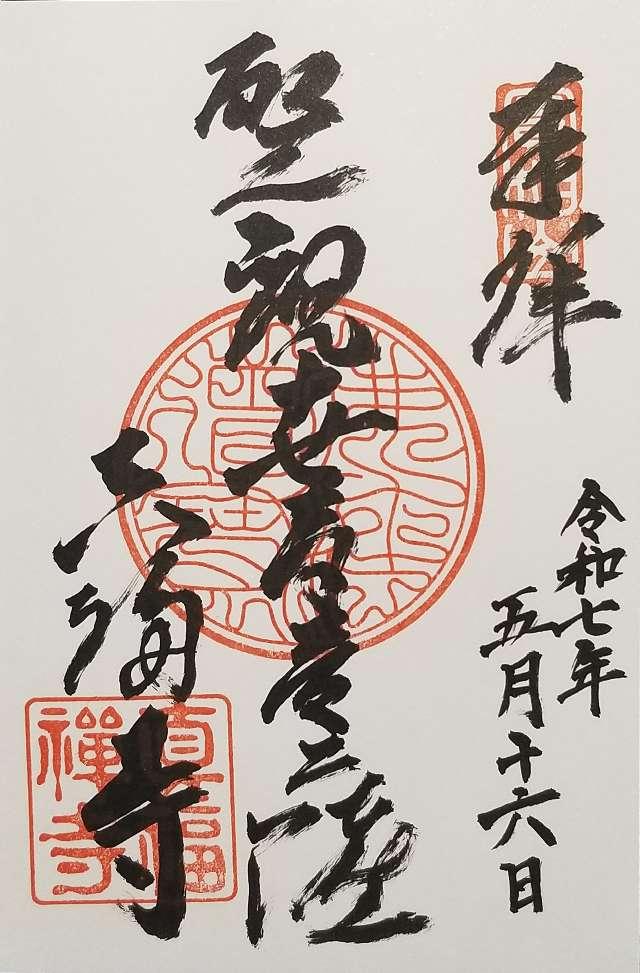 奉拝
令和七年
五月十六日
聖観世音菩薩
真福寺
真福
禅寺